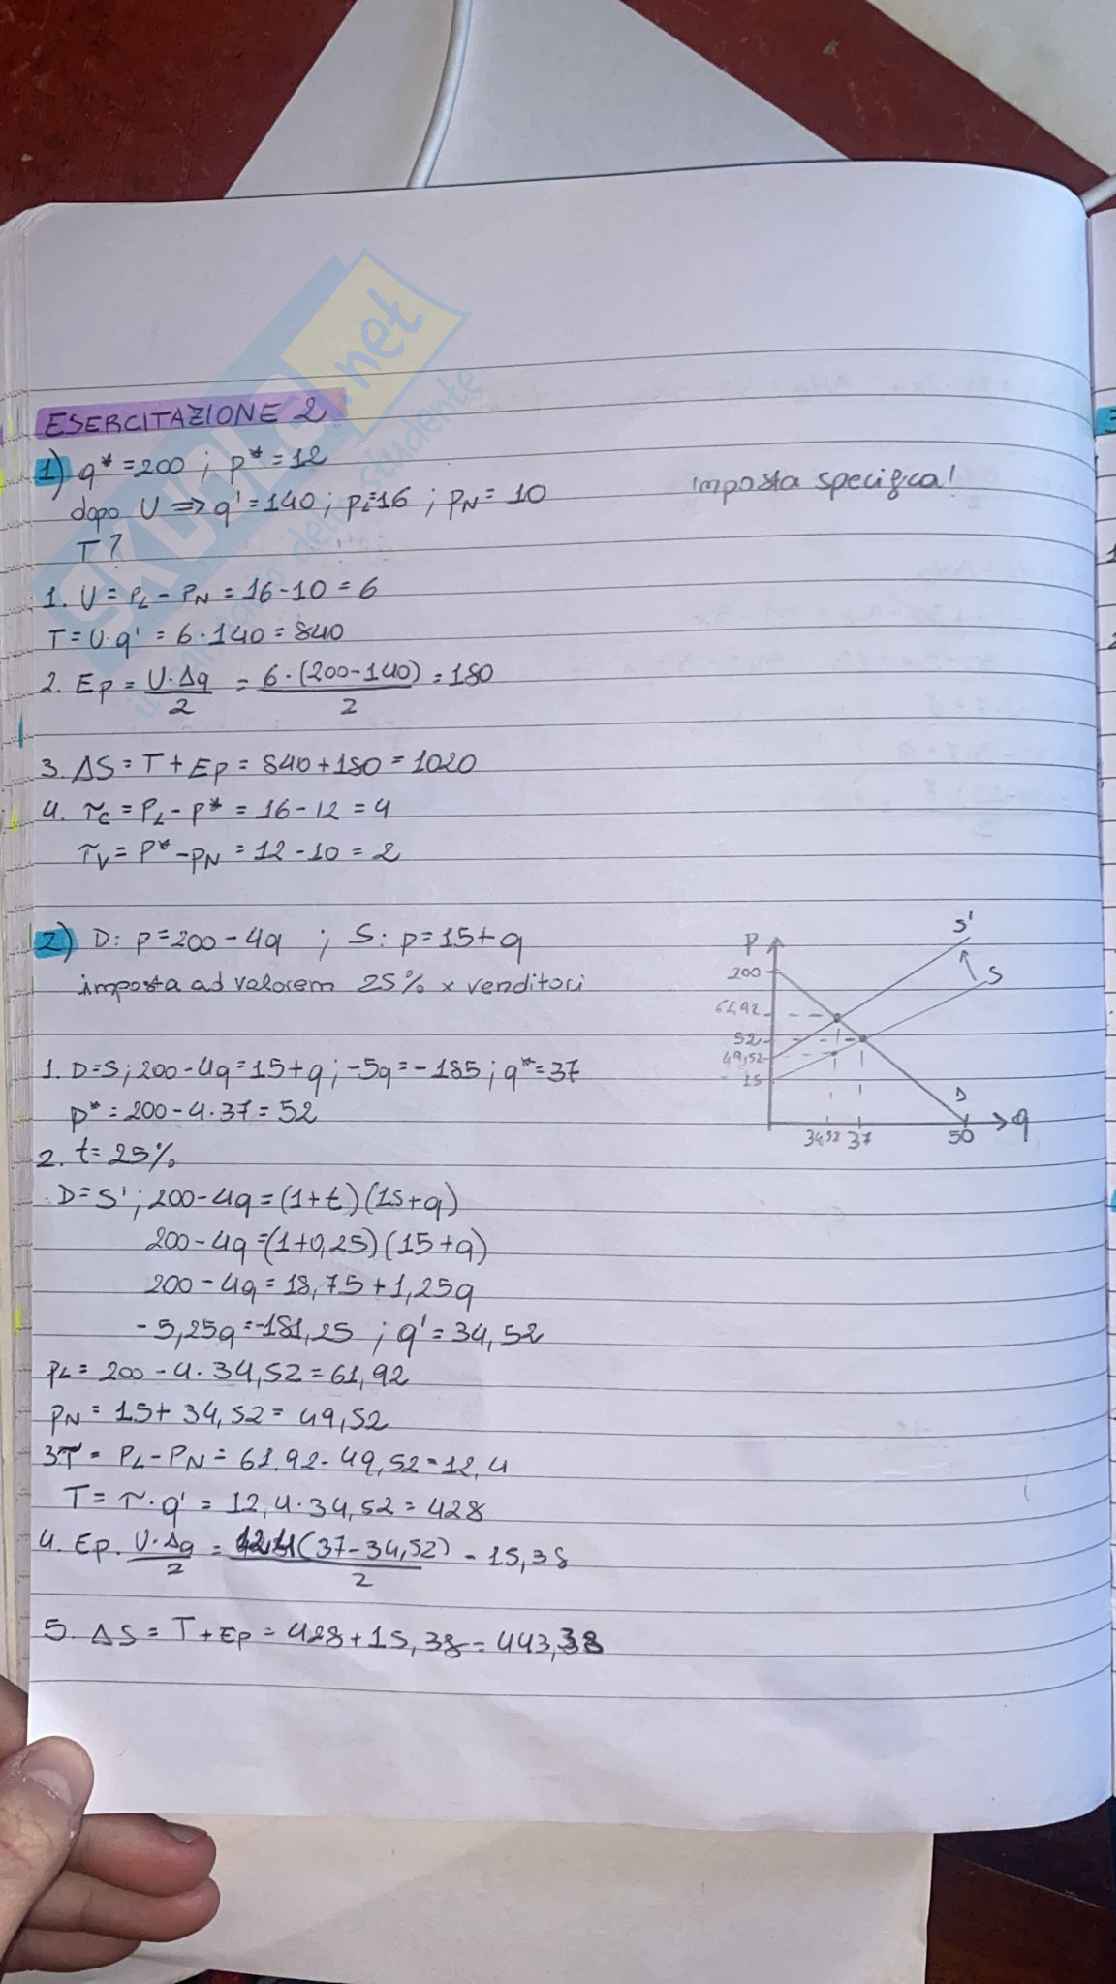 ESERCITAZIONE 2
1) q* = 200 ; p* = 12
dopo U ⇒ q' = 140 ; pL = 16 ; pN = 10
imposta specifica!
T?
1. U = PL - PN = 16 - 10 = 6
T = U · q' = 6 · 140 = 840
2. Ep = U·Δq / 2 = 6 · (200 - 140) / 2 = 180
3. ΔS = T + Ep = 840 + 180 = 1020
4. τc = PL - p* = 16 - 12 = 4
τv = P* - PN = 12 - 10 = 2
2) D: p = 200 - 4q ; S: p = 15 + q
imposta ad valorem 25% x venditori
1. D = S ; 200 - 4q = 15 + q ; -5q = -185 ; q* = 37
p* = 200 - 4 · 37 = 52
2. t = 25%
D = S' ; 200 - 4q = (1 + t)(15 + q)
200 - 4q = (1 + 0,25)(15 + q)
200 - 4q = 18,75 + 1,25q
-5,25q = -181,25 ; q' = 34,52
PL = 200 - 4 · 34,52 = 61,92
PN = 15 + 34,52 = 49,52
3 τ = PL - PN = 61,92 - 49,52 = 12,4
T = τ · q' = 12,4 · 34,52 = 428
4. Ep. U·Δq / 2 = 12,4 (37 - 34,52) / 2 = 15,38
5. ΔS = T + Ep = 428 + 15,38 = 443,38
P
200
61,92
52
49,52
15
S'
S
D
34,52 37 50 q
SKUOLA.net